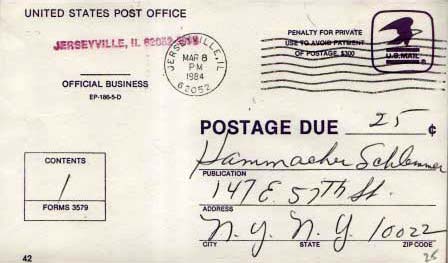 UNITED STATES POST OFFICE
JERSEYVILLE, IL 62052
OFFICIAL BUSINESS
EP-186-5-D
JERSEYVILLE, IL
MAR 8
PM
1984
62052
PENALTY FOR PRIVATE
USE TO AVOID PAYMENT
OF POSTAGE, $300
U.S. MAIL
POSTAGE DUE 25 ¢
Hammacher Schlemmer
PUBLICATION
147 E. 57th St.
ADDRESS
N.Y. N.Y. 10022
CITY STATE ZIP CODE
CONTENTS
1
FORMS 3579
42
25